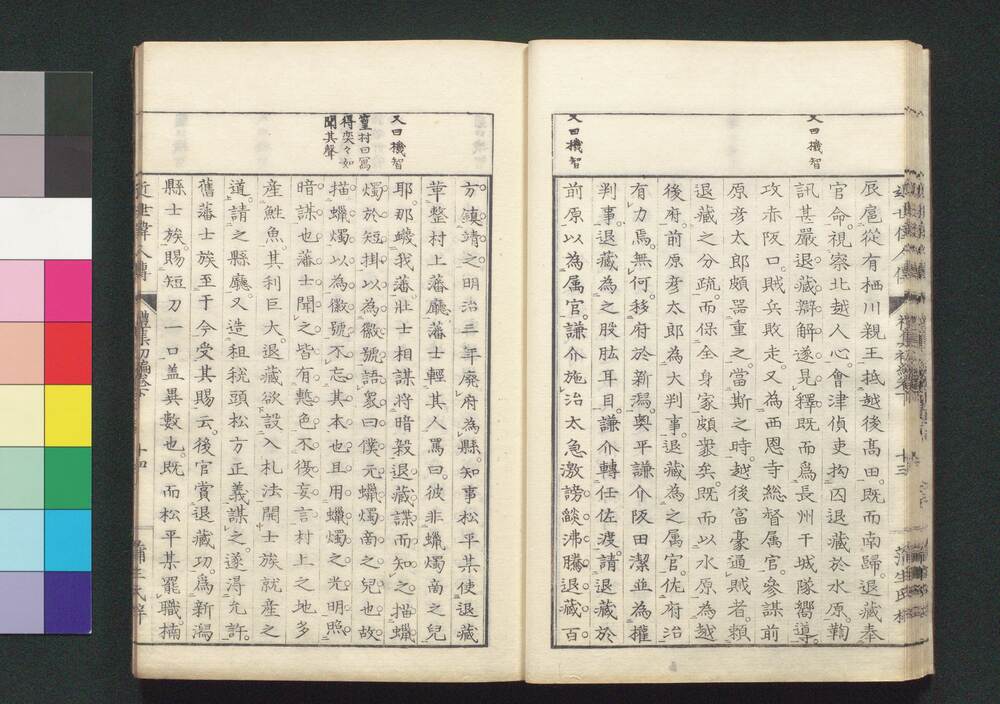 又曰機智
又曰機智
辰扈從有栖川親王抵越後高田。既而南歸。退藏奉
官命。視察北越人心。會津偵吏拘囚退藏於水原。鞠
訊甚嚴。退藏辯解。遂見釋。既而爲長州干城隊嚮導。
攻赤阪口。賊兵敗走。又為西恩寺総督属官。參謀前
原彦太郎頗噐重之。當斯之時。越後富豪通賊者。頼
退藏之分疏。而保全身家頗衆矣。既而以水原為越
後府。前原彦太郎為大判事。退藏為之属官。佐府治
有力焉。無何。移府於新潟。奥平謙介阪田潔並為權
判事。退藏為之股肱耳目。謙介轉任佐渡。請退藏於
前原以為属官。謙介施治太急激。謗燄沸騰。退藏百
又曰機智
篁村曰寫
得奕々如
聞其聲
方。鎮靖之。明治三年廢府為縣。知事松平某使退藏
華整村上藩廳。藩士輕其人罵曰。彼非蠟燭啇之兒
耶。那蟣我藩。藩壯士相謀。将暗殺退藏。諜而知之。描蠟
燭於短掛。以為徽號。語衆曰。僕元蠟燭啇之兒也。故
描蠟燭以為徽號。不忘其本也。且用蠟燭之光明。照
暗謀也。藩士聞之。皆有慙色。不復妄言。村上之地多
産鮏魚。其利巨大。退藏欲設入札法開士族就産之
道。請之縣廳。又造租税頭松方正義謀之。遂得允許。
舊藩士族至于今受其賜云。後官賞退藏功。為新潟
縣士族。賜短刀一口。盖異數也。既而松平某罷職。楠
近世偉人傳
禮集初編卷下
十四
蒲生氏梓